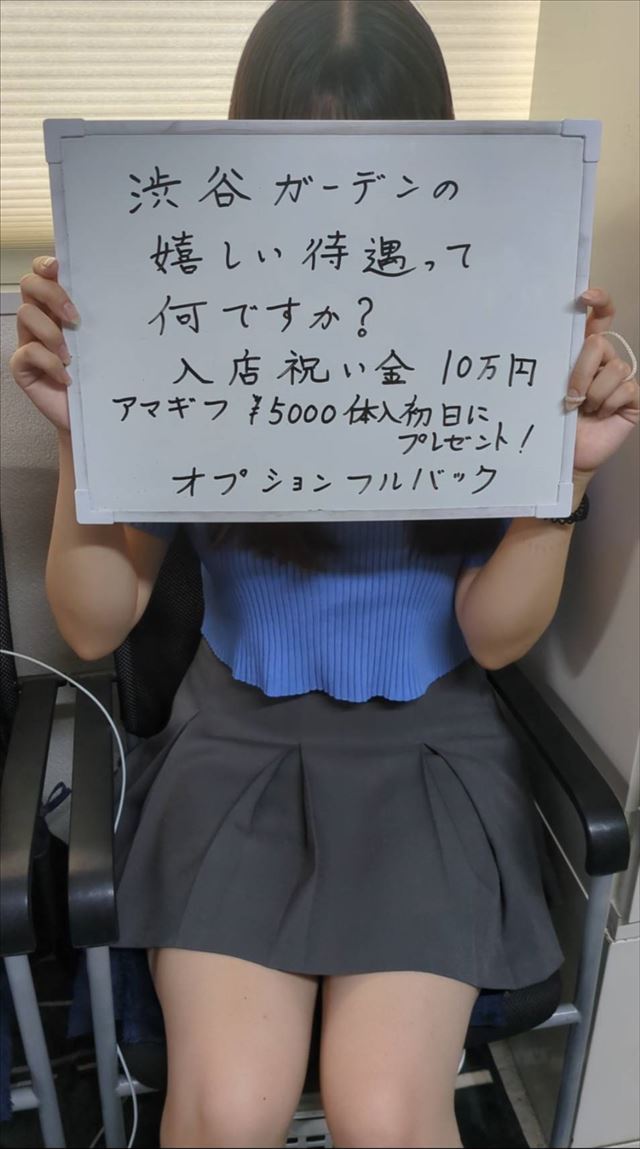 渋谷ガーデンの
嬉しい待遇って
何ですか？
入店祝い金 10万円
アマギフ ¥5000体入初日に
プレゼント！
オプションフルバック